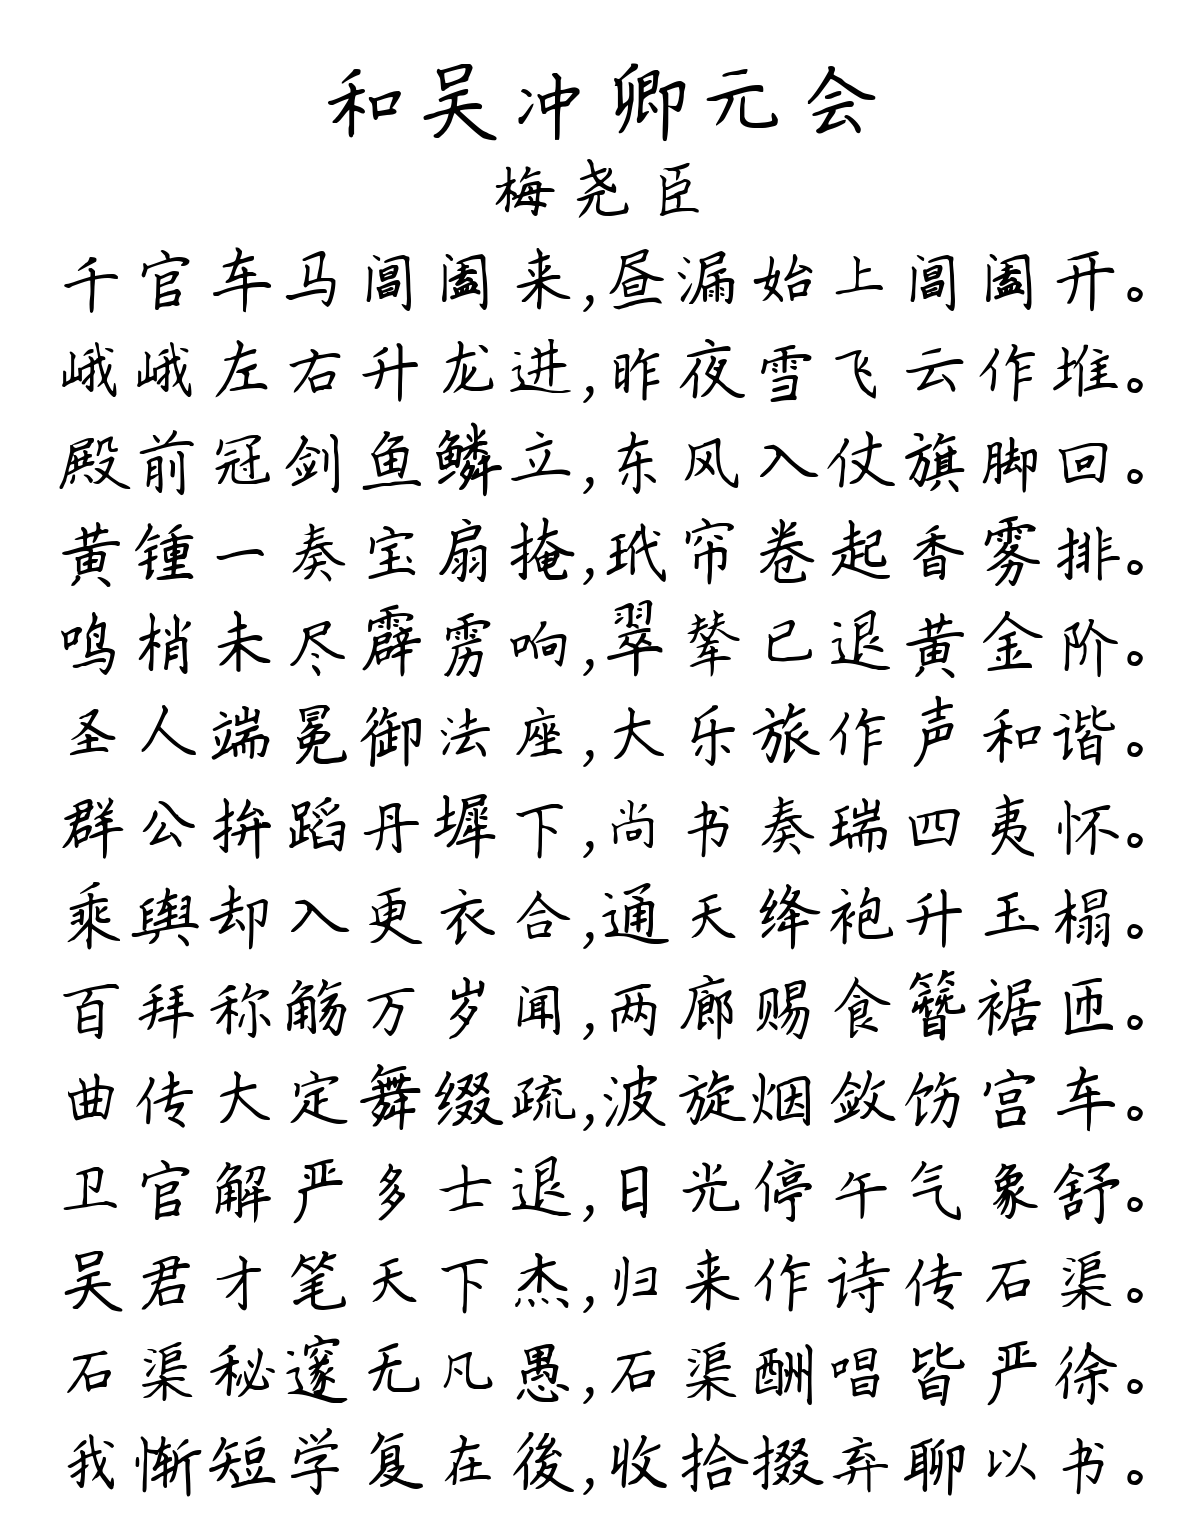 和吴冲卿元会
梅尧臣
千官车马阊阖来,昼漏始上阊阖开。
峨峨左右升龙进,昨夜雪飞云作堆。
殿前冠剑鱼鳞立,东风入仗旗脚回。
黄锺一奏宝扇掩,玳帘卷起香雾排。
鸣梢未尽霹雳响,翠辇已退黄金阶。
圣人端冕御法座,大乐旅作声和谐。
群公拚蹈丹墀下,尚书奏瑞四夷怀。
乘舆却入更衣合,通天绛袍升玉榻。
百拜称觞万岁闻,两廊赐食簪裾匝。
曲传大定舞缀疏,波旋烟敛饬宫车。
卫官解严多士退,日光停午气象舒。
吴君才笔天下杰,归来作诗传石渠。
石渠秘邃无凡愚,石渠酬唱皆严徐。
我惭短学复在後,收拾掇弃聊以书。